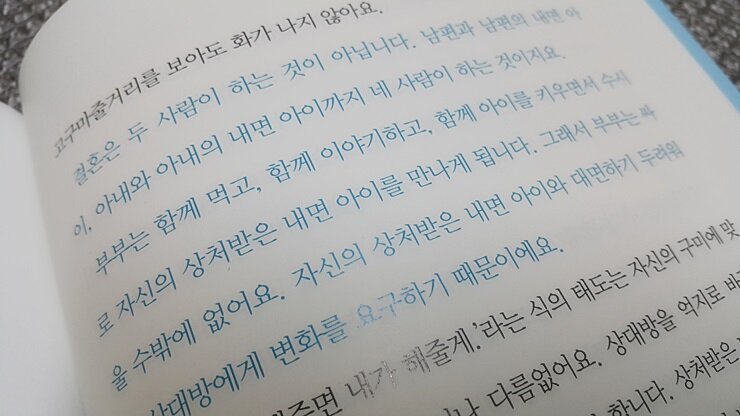 고구마줄거리를 보아도 화가 나지 않아요.
결혼은 두 사람이 하는 것이 아닙니다. 남편과 남편의 내면 아
이, 아내와 아내의 내면 아이까지 네 사람이 하는 것이지요.
부부는 함께 먹고, 함께 이야기하고, 함께 아이를 키우면서 수시
로 자신의 상처받은 내면 아이를 만나게 됩니다. 그래서 부부는 싸
울 수밖에 없어요. 자신의 상처받은 내면 아이와 대면하기 두려워
상대방에게 변화를 요구하기 때문이에요.
내가 해줄게.’라는 식의 태도는 자신의 구미에 맞
다름없어요. 상대방을 억지로
합니다. 상처받은